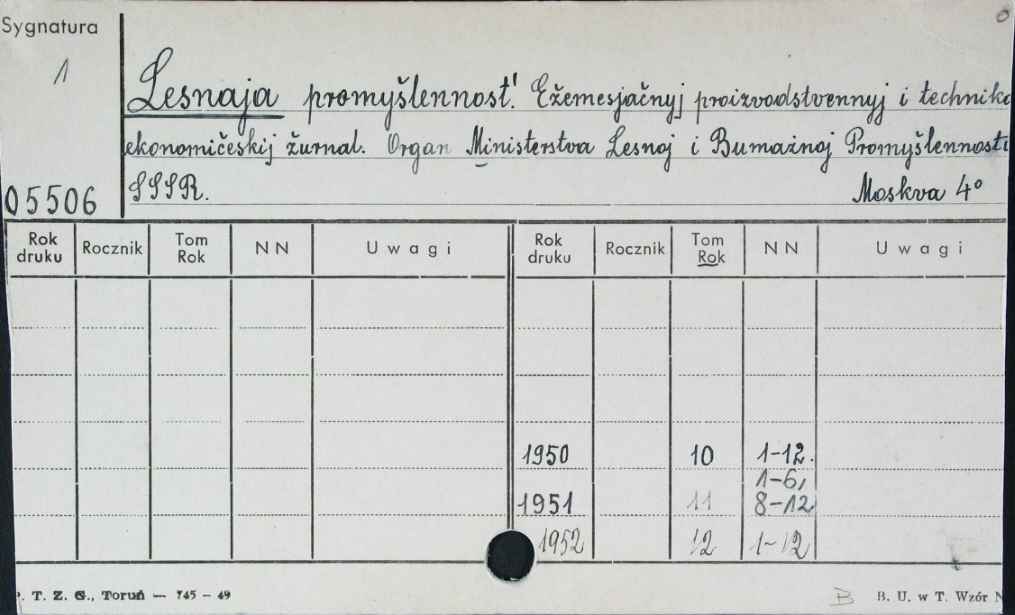 Sygnatura
1
Lesnaja promyšlennost'. Ežemesjačnyj proizvodstvennyj i techniko
ekonomičeskij žurnal. Organ Ministerstva Lesnoj i Bumažnoj Promyšlennosti
SSSR. Moskva 4°
05506
Rok druku Rocznik Tom Rok NN Uwagi Rok druku Rocznik Tom Rok NN Uwagi
1950 10 1-12.
1-6,
1951 11 8-12
1952 12 1-12
P. T. Z. G., Toruń — 745 — 49 B B. U. w T. Wzór N